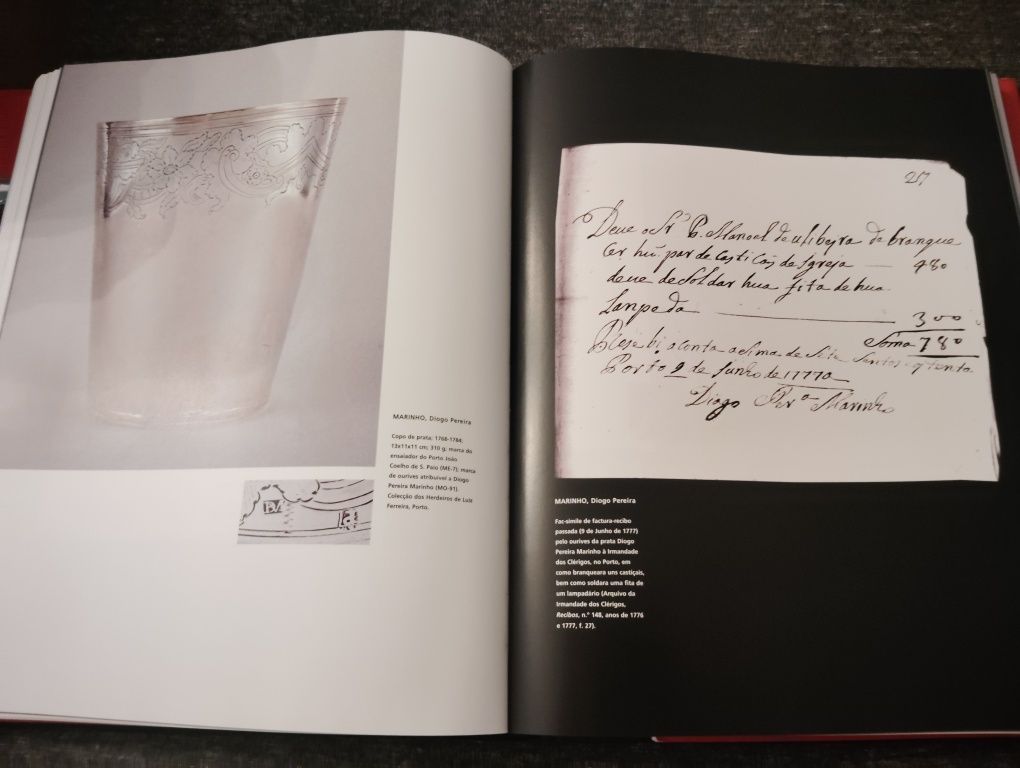 MARINHO, Diogo Pereira
Copo de prata: 1768-1784;
13x11x11 cm; 310 g; marca do
ensaiador do Porto João
Coelho de S. Paio (ME-7); marca
de ourives atribuível a Diogo
Pereira Marinho (MO-91).
Colecção dos Herdeiros de Luís
Ferreira, Porto.
Deue o Sr P. Manoel de
de branque
Car hũ par de Castiçais de Igreja 480
deue de Soldar hua fita de hua
Lanpada 300
Soma 780
Resebi a conta asima de Sete Sentos
Porto 9 de Junho de 1777
Diogo Per.ª Marinho
MARINHO, Diogo Pereira
Fac-símile de factura-recibo
passada (9 de Junho de 1777)
pelo ourives da prata Diogo
Pereira Marinho à Irmandade
dos Clérigos, no Porto, em
como branqueara uns castiçais,
bem como soldara uma fita de
um lampadário (Arquivo da
Irmandade dos Clérigos,
Recibos, n.º 148, anos de 1776
e 1777, f. 27).